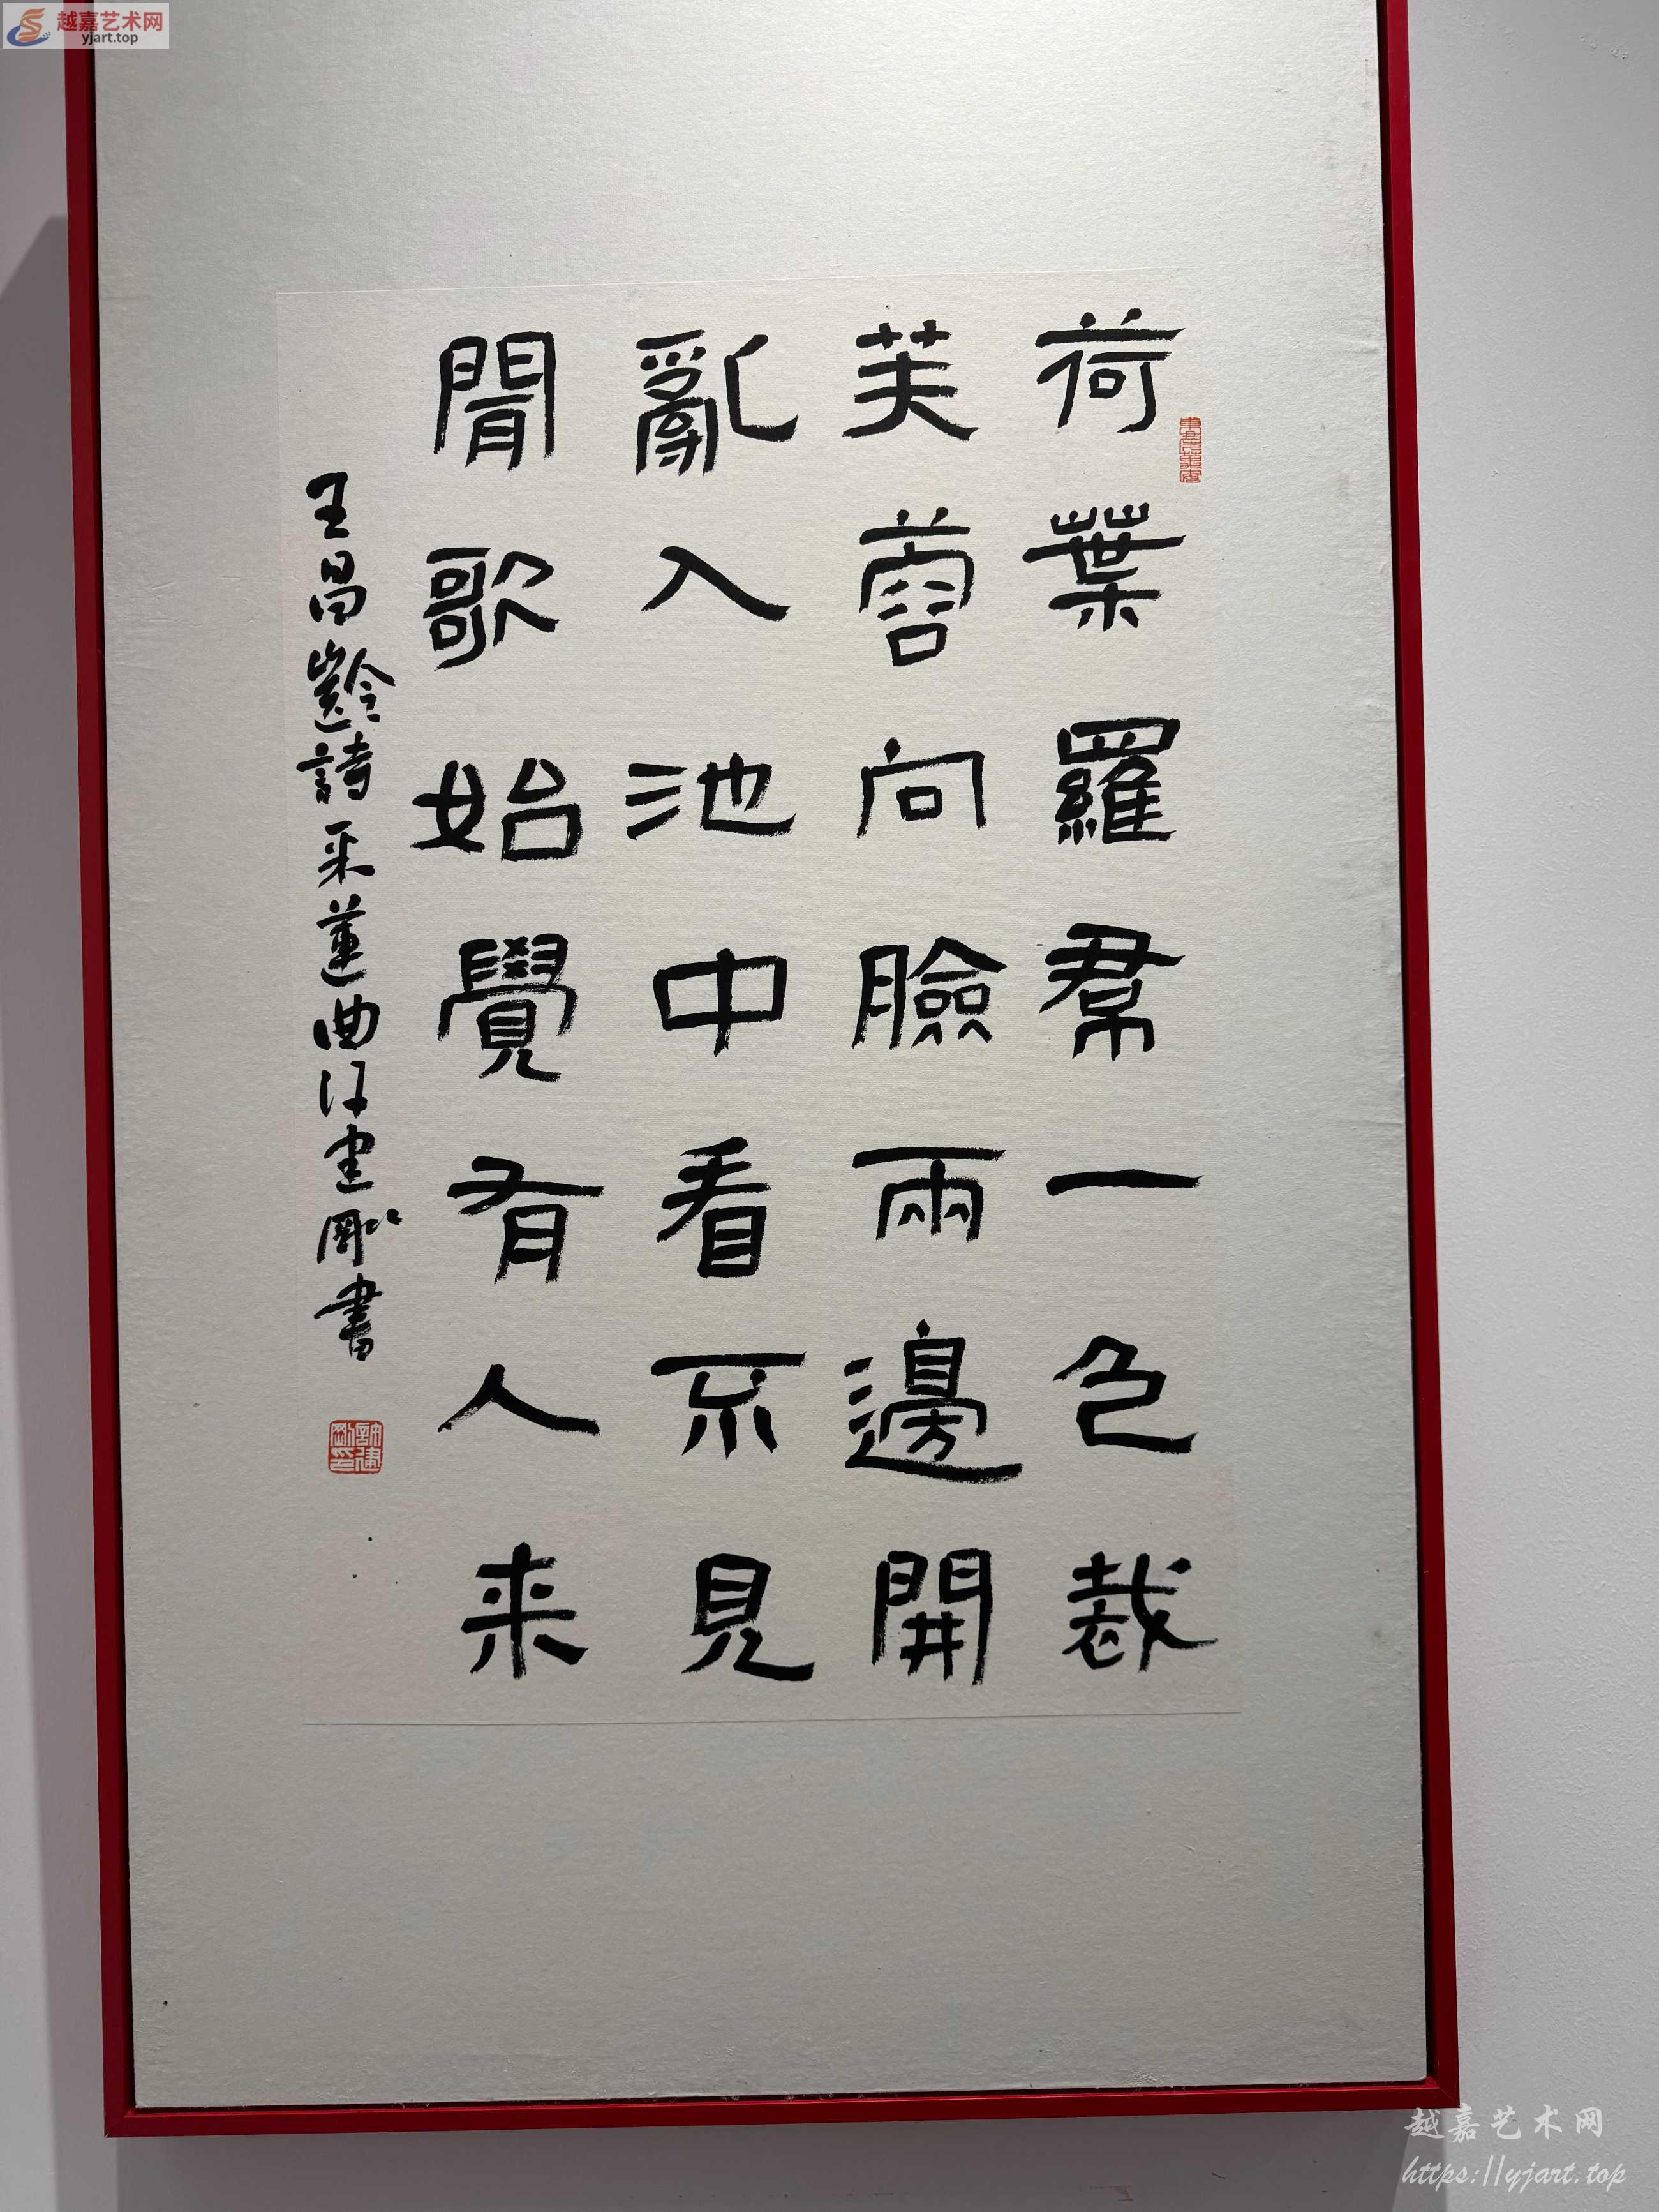 越嘉艺术网
yjart.top
荷葉羅裙一色裁
芙蓉向臉兩邊開
亂入池中看不見
聞歌始覺有人来
王昌齡詩采蓮曲许建剛書
越嘉艺术网
https://yjart.top